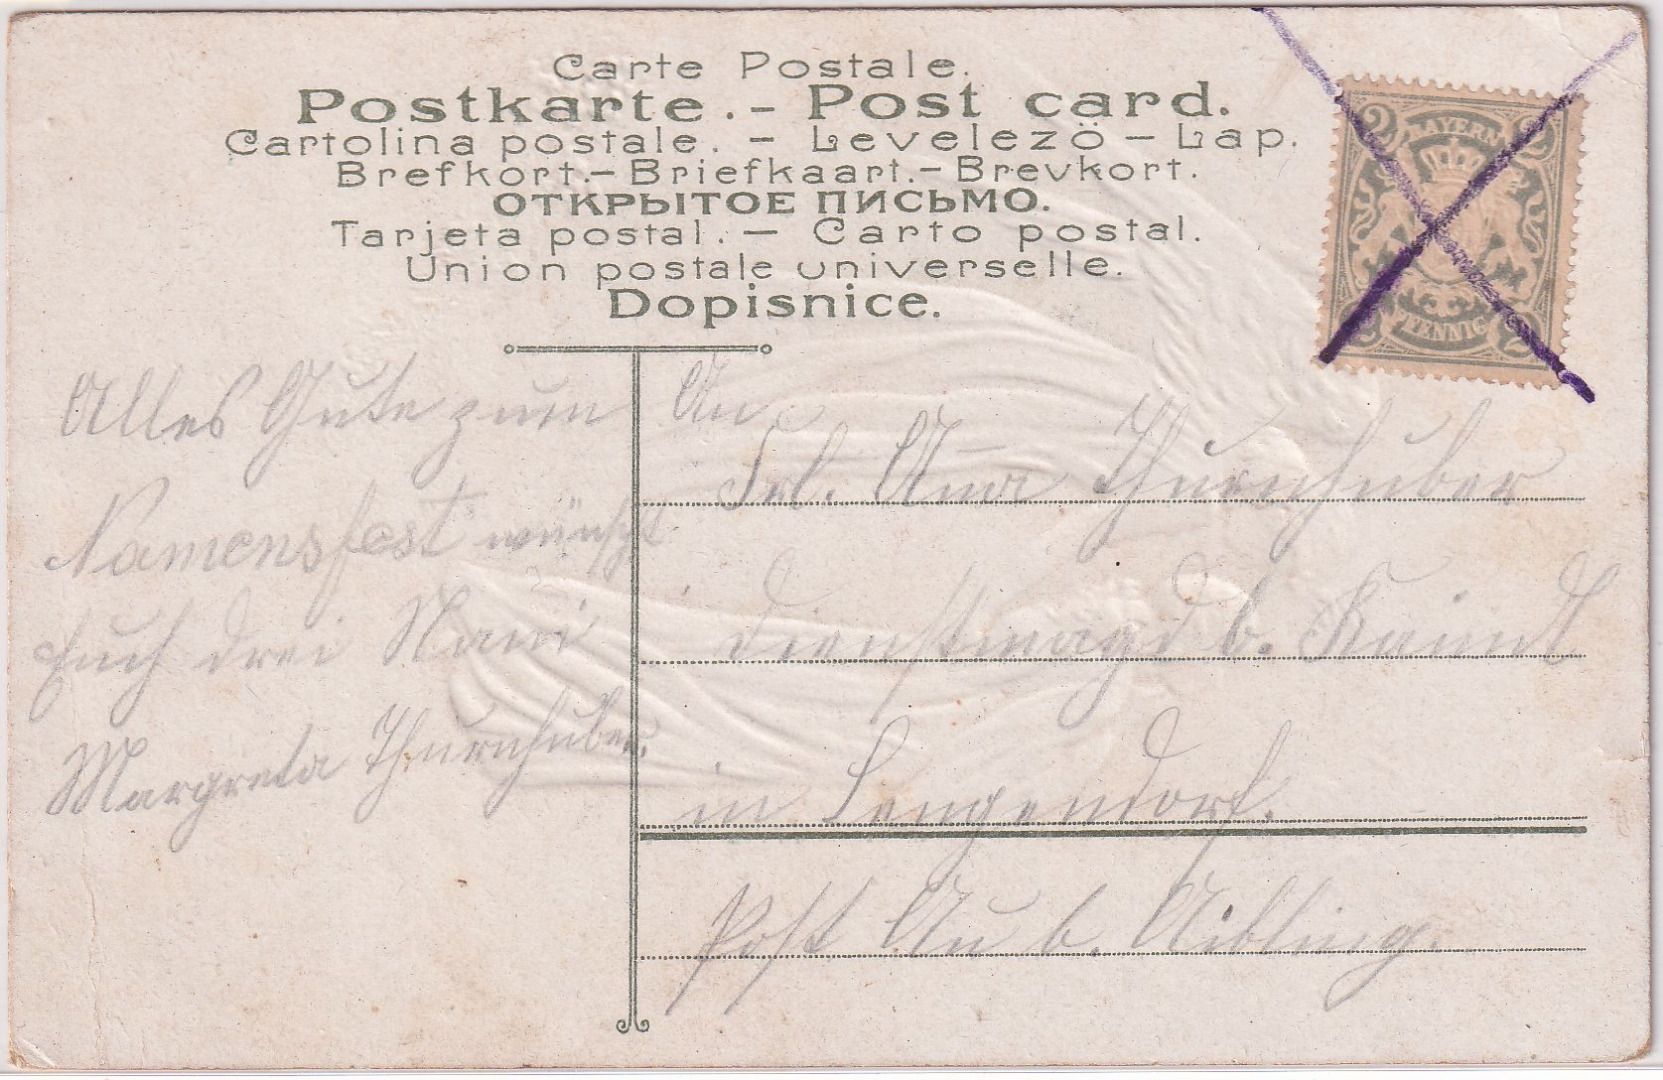 Carte Postale.
Postkarte.- Post card.
Cartolina postale. - Levelezö - Lap.
Brefkort.- Briefkaart.- Brevkort.
ОТКРЫТОЕ ПИСЬМО.
Tarjeta postal. - Carto postal.
Union postale universelle.
Dopisnice.
2 BAYERN 2
2 PFENNIG 2
Alles Gute zum
Namensfest wünscht
Euch drei Nani
Margreta Thurnhuber.
An
Frl. Anna Thurnhuber
Dienstmagd b.
in Lengendorf.
Post Au b. Aibling.